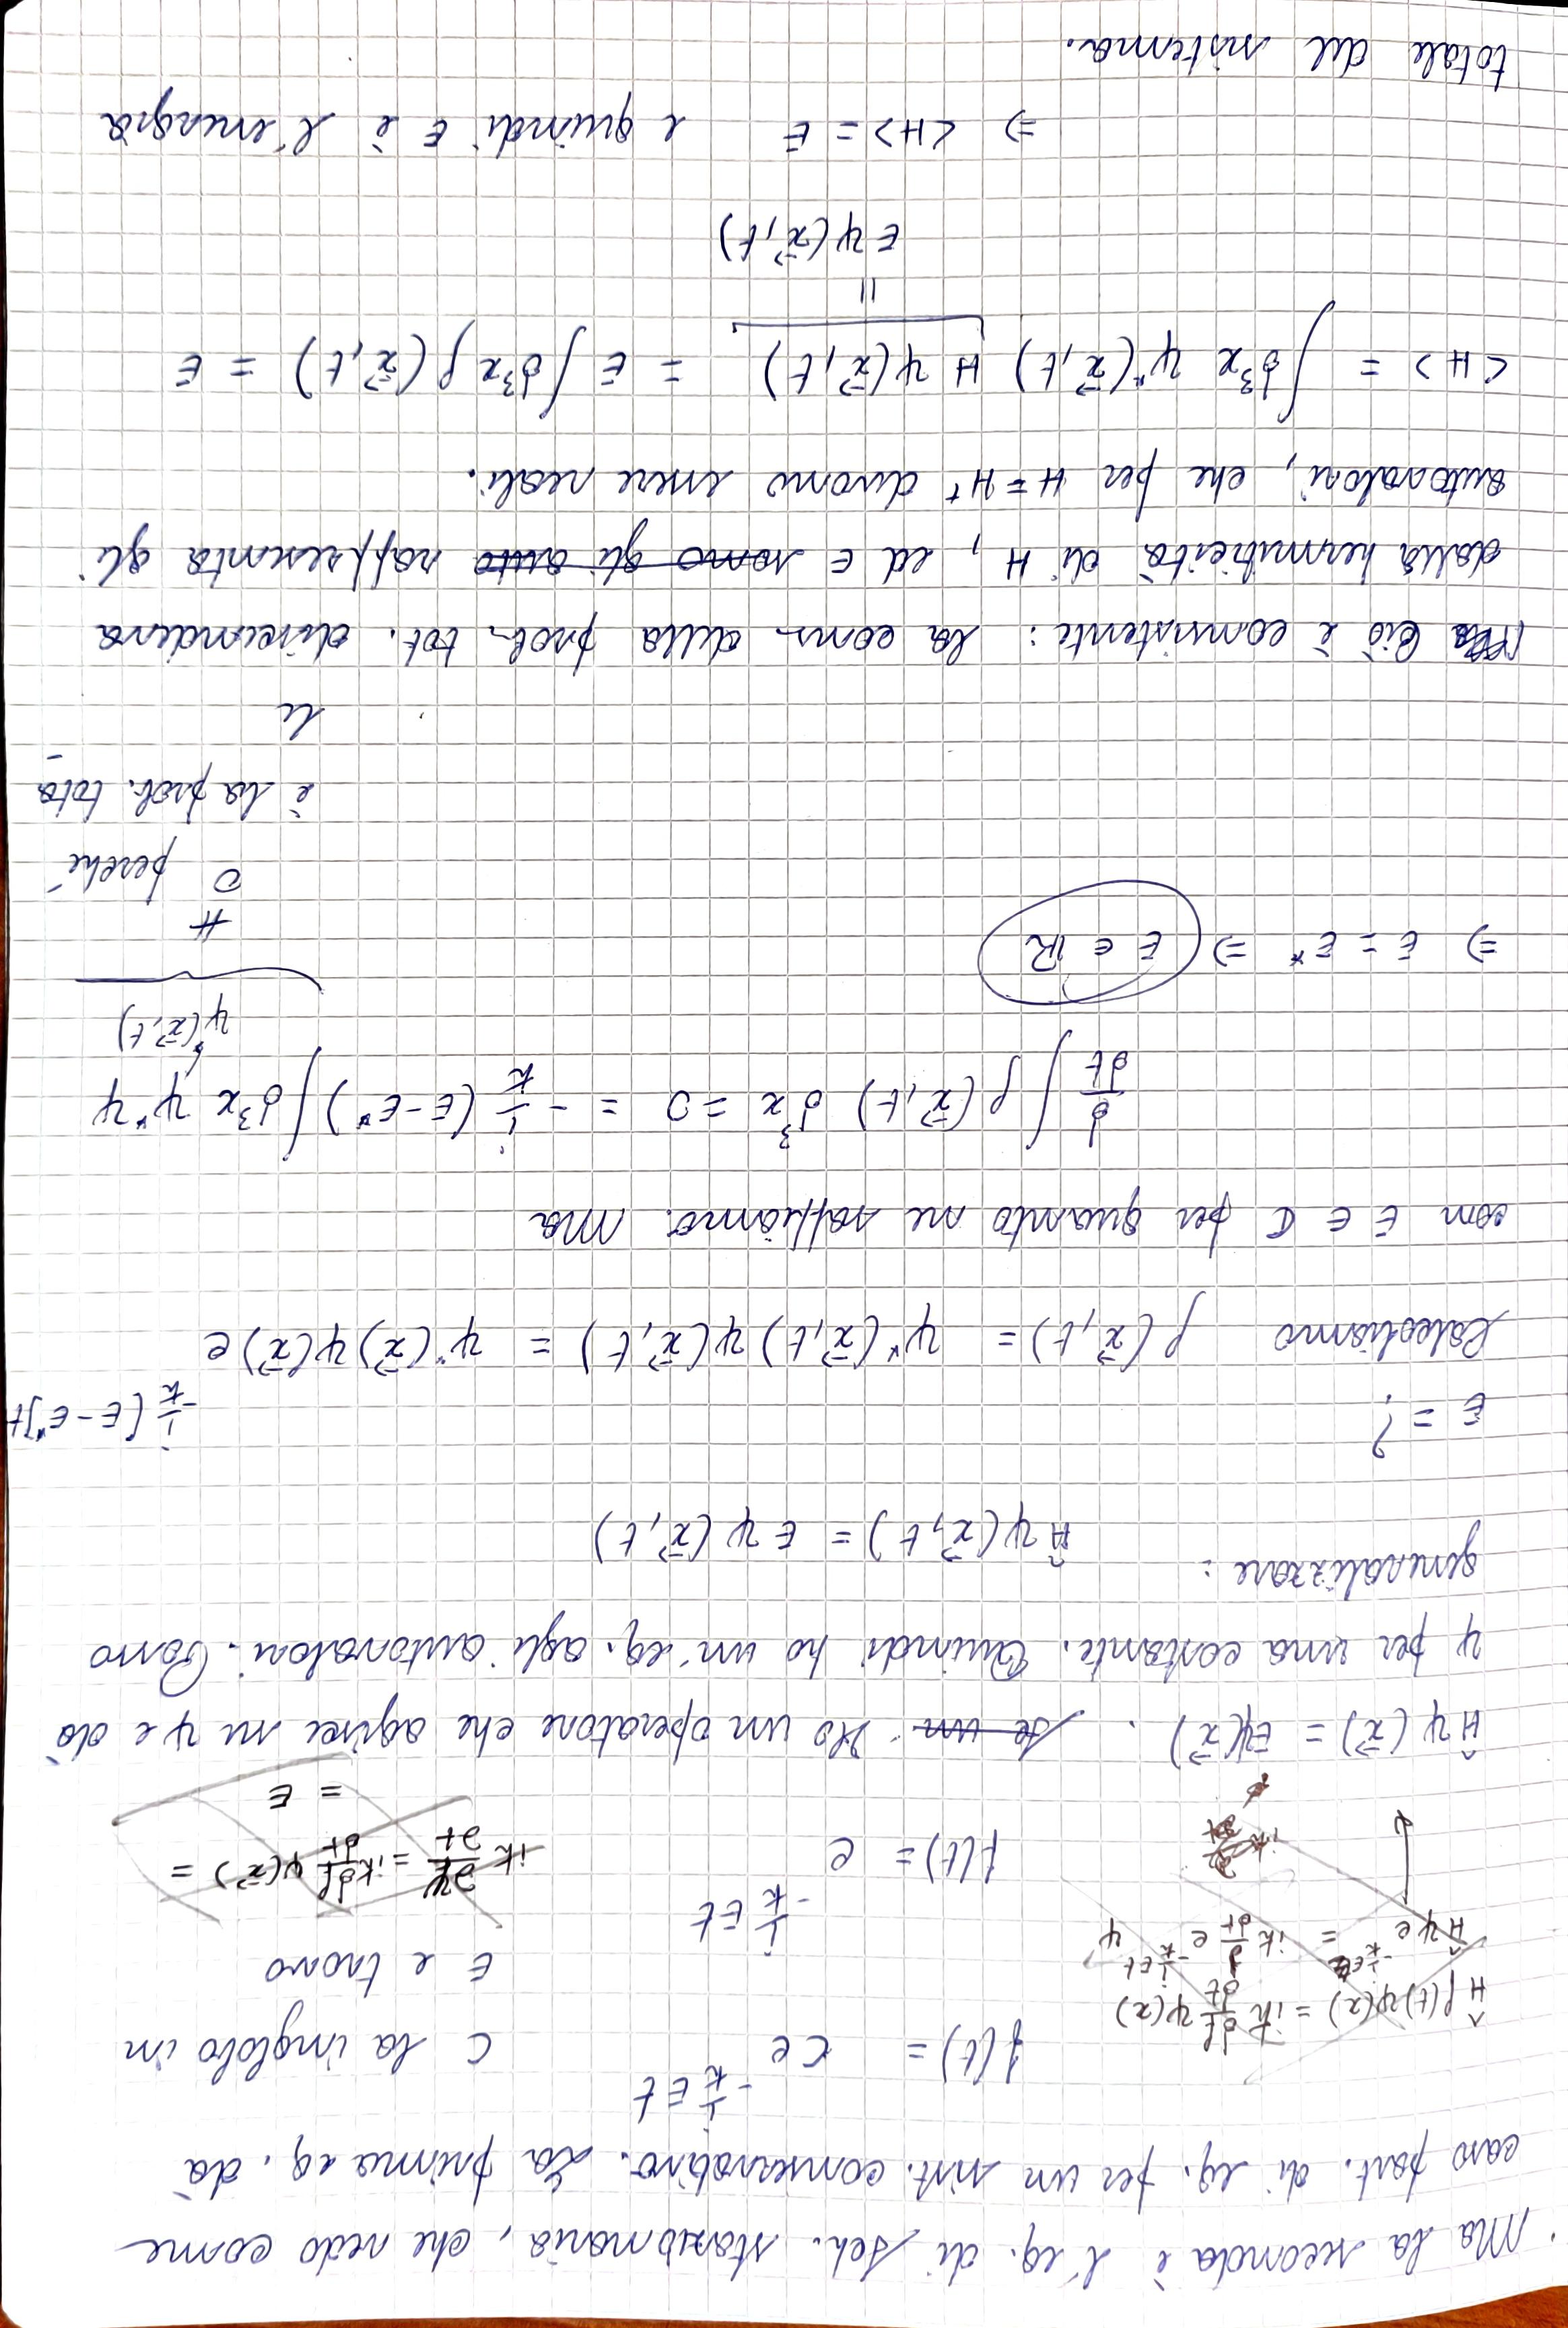 Ma la seconda è l'eq. di Sch. stazionaria, che vedo come
caso part. di eq. per un sist. conservativo. La prima eq. dà
f(t) = C e^{-i/ħ Et} C la inglobo in
E e trovo
Ĥ f(t)ψ(x) = iħ df/dt ψ(x)
Ĥψ e^{-i/ħ Et} = iħ d/dt e^{-i/ħ Et} ψ
f(t) = e^{-i/ħ Et}
iħ ∂ψ/∂t = iħ df/dt ψ(x⃗) =
= E
Ĥψ(x⃗) = Eψ(x⃗). Se un Ho un operatore che agisce su ψ e dà
ψ per una costante. Quindi ho un'eq. agli autovalori. Posso
generalizzare: Ĥψ(x⃗,t) = Eψ(x⃗,t)
E = ?
Calcoliamo ρ(x⃗,t) = ψ*(x⃗,t)ψ(x⃗,t) = ψ*(x⃗)ψ(x⃗)e^{-i/ħ [E-E*]t}
con E ∈ ℂ per quanto ne sappiamo. Ma
d/dt ∫ρ(x⃗,t) d³x = 0 = -i/ħ (E-E*)∫d³x ψ*ψ
ψ(x⃗,t)
⇒ E = E* ⇒ E ∈ ℝ
≠
0 perché
è la prob. tota-
le
Ma Ciò è consistente: la cons. della prob. tot. discendeva
dalla hermiticità di H, ed E sono gli auto rappresenta gli
autovalori, che per H=H† devono essere reali.
<H> = ∫d³x ψ*(x⃗,t) Hψ(x⃗,t) = E∫d³x ρ(x⃗,t) = E
=
Eψ(x⃗,t)
⇒ <H> = E e quindi E è l'energia
totale del sistema.